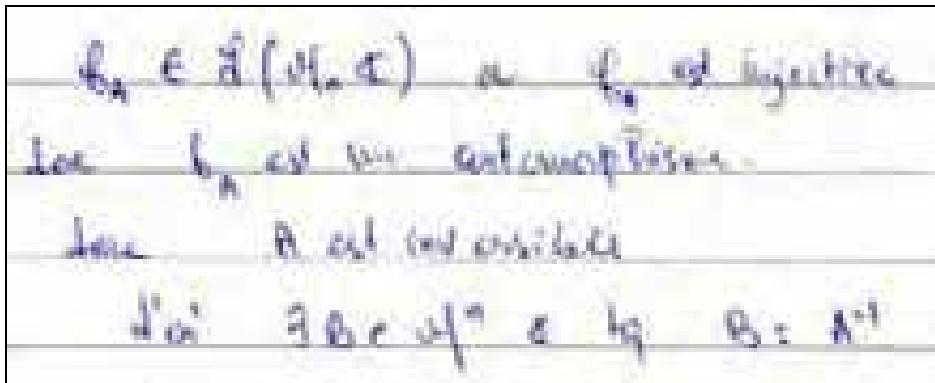 f_A ∈ L(M_n ℂ) or f_A est injective
donc f_A est un automorphisme.
donc A est inversible
d'où ∃ B ∈ M_n ℂ tq B = A⁻¹